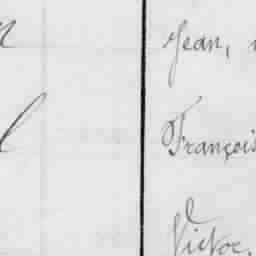 Jean,
François
Victor,